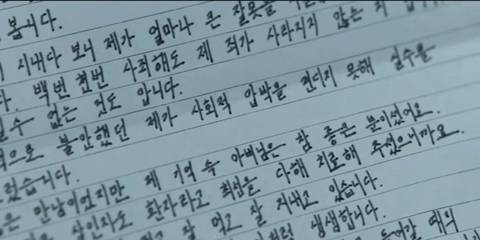 봅니다.
지내다 보니 제가 얼마나 큰 잘못을
다. 백번 천번 사죄해도 제 죄가 사라지지 않는 죄
수 없는 것도 압니다.
적으로 불안했던 제가 사회적 압박을 견디지 못해 실수를
렀습니다.
은 만남이었지만 제 기억 속 아버님은 참 좋은 분이셨어요.
살인자도 환자라고 최선을 다해 치료해 주셨으니까요.
잘 먹고 잘 지내고 있습니다.
생생합니다.